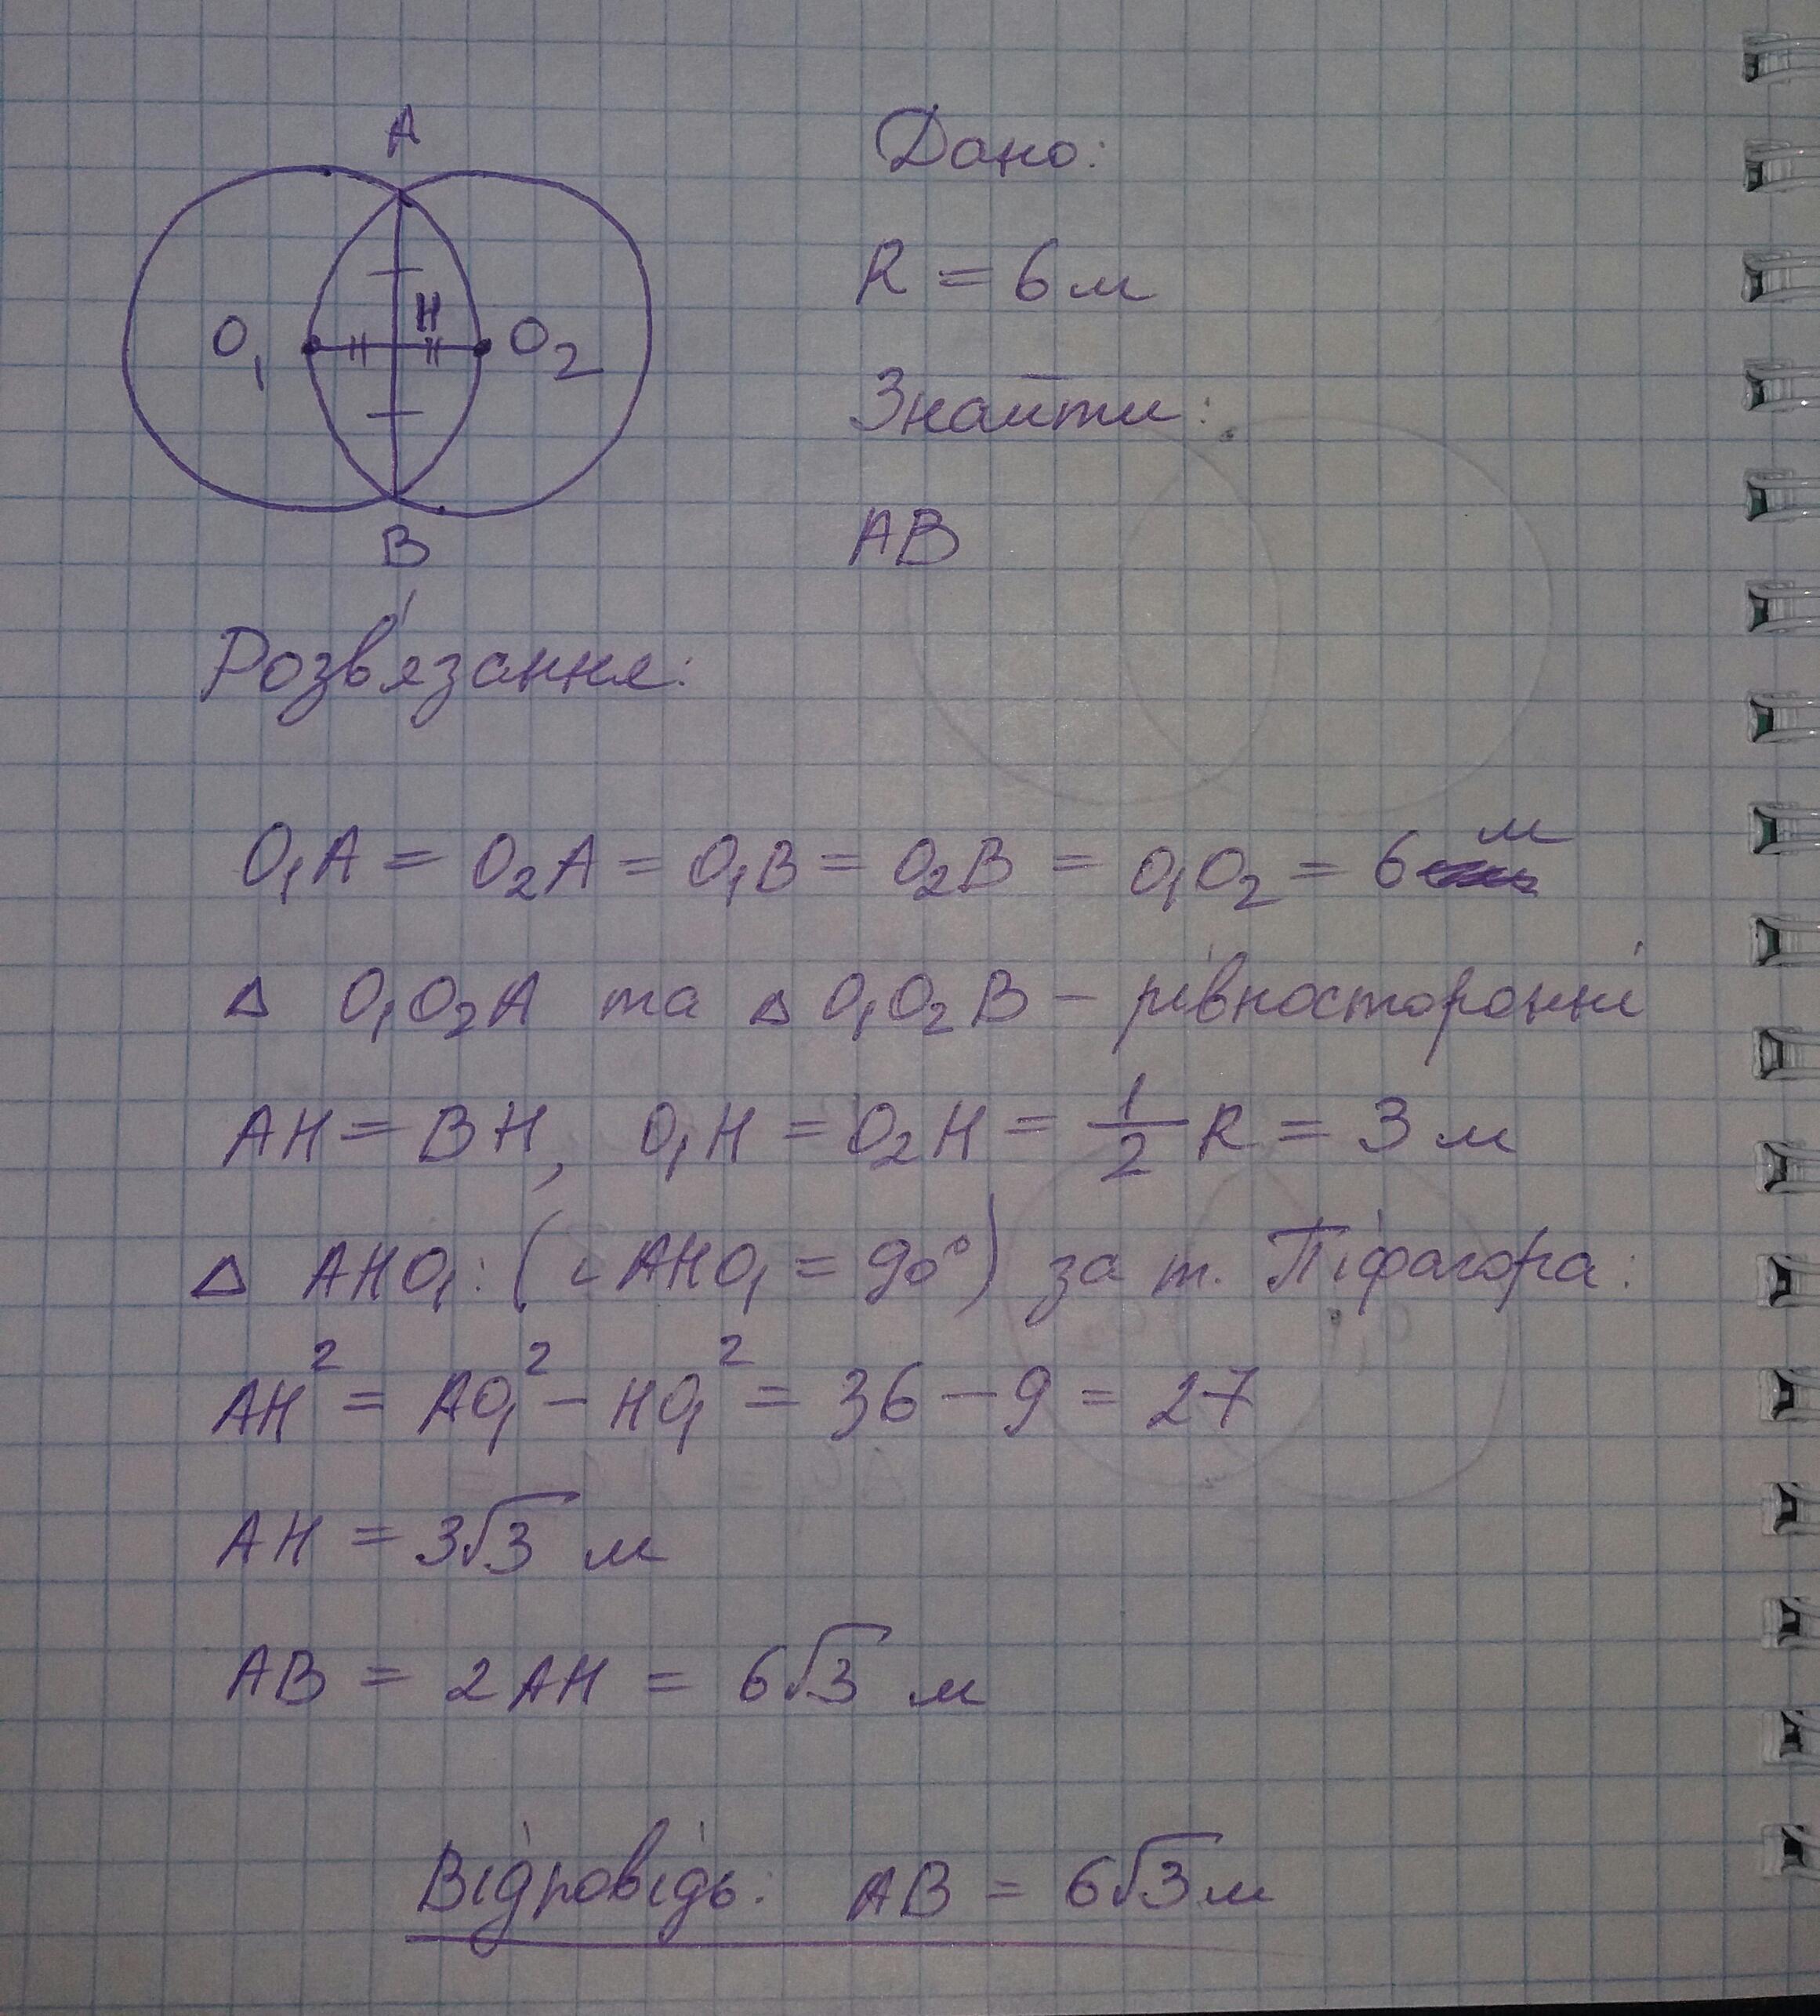 A
O₁
H
O₂
B
Дано:
R = 6 м
Знайти:
AB
Розв'язання:
O₁A = O₂A = O₁B = O₂B = O₁O₂ = 6 м
△ O₁O₂A та △ O₁O₂B – рівносторонні
AH = BH, O₁H = O₂H = 1/2 R = 3 м
△ AHO₁: (∠AHO₁ = 90°) за т. Піфагора:
AH² = AO₁² – HO₁² = 36 – 9 = 27
AH = 3√3 м
AB = 2AH = 6√3 м
Відповідь: AB = 6√3 м